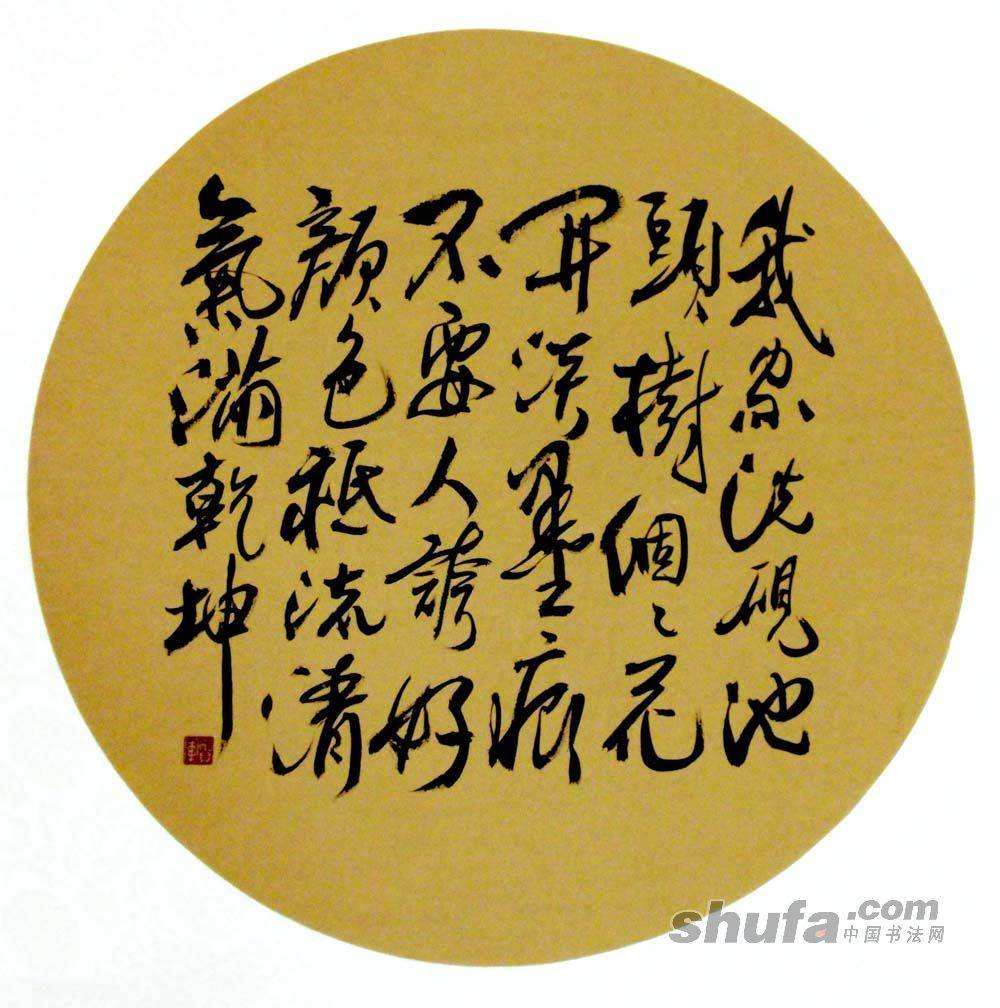 我家洗硯池
頭樹個々花
開淡墨痕
不要人誇好
顔色祗流清
氣滿乾坤
shufa.com
中国书法网